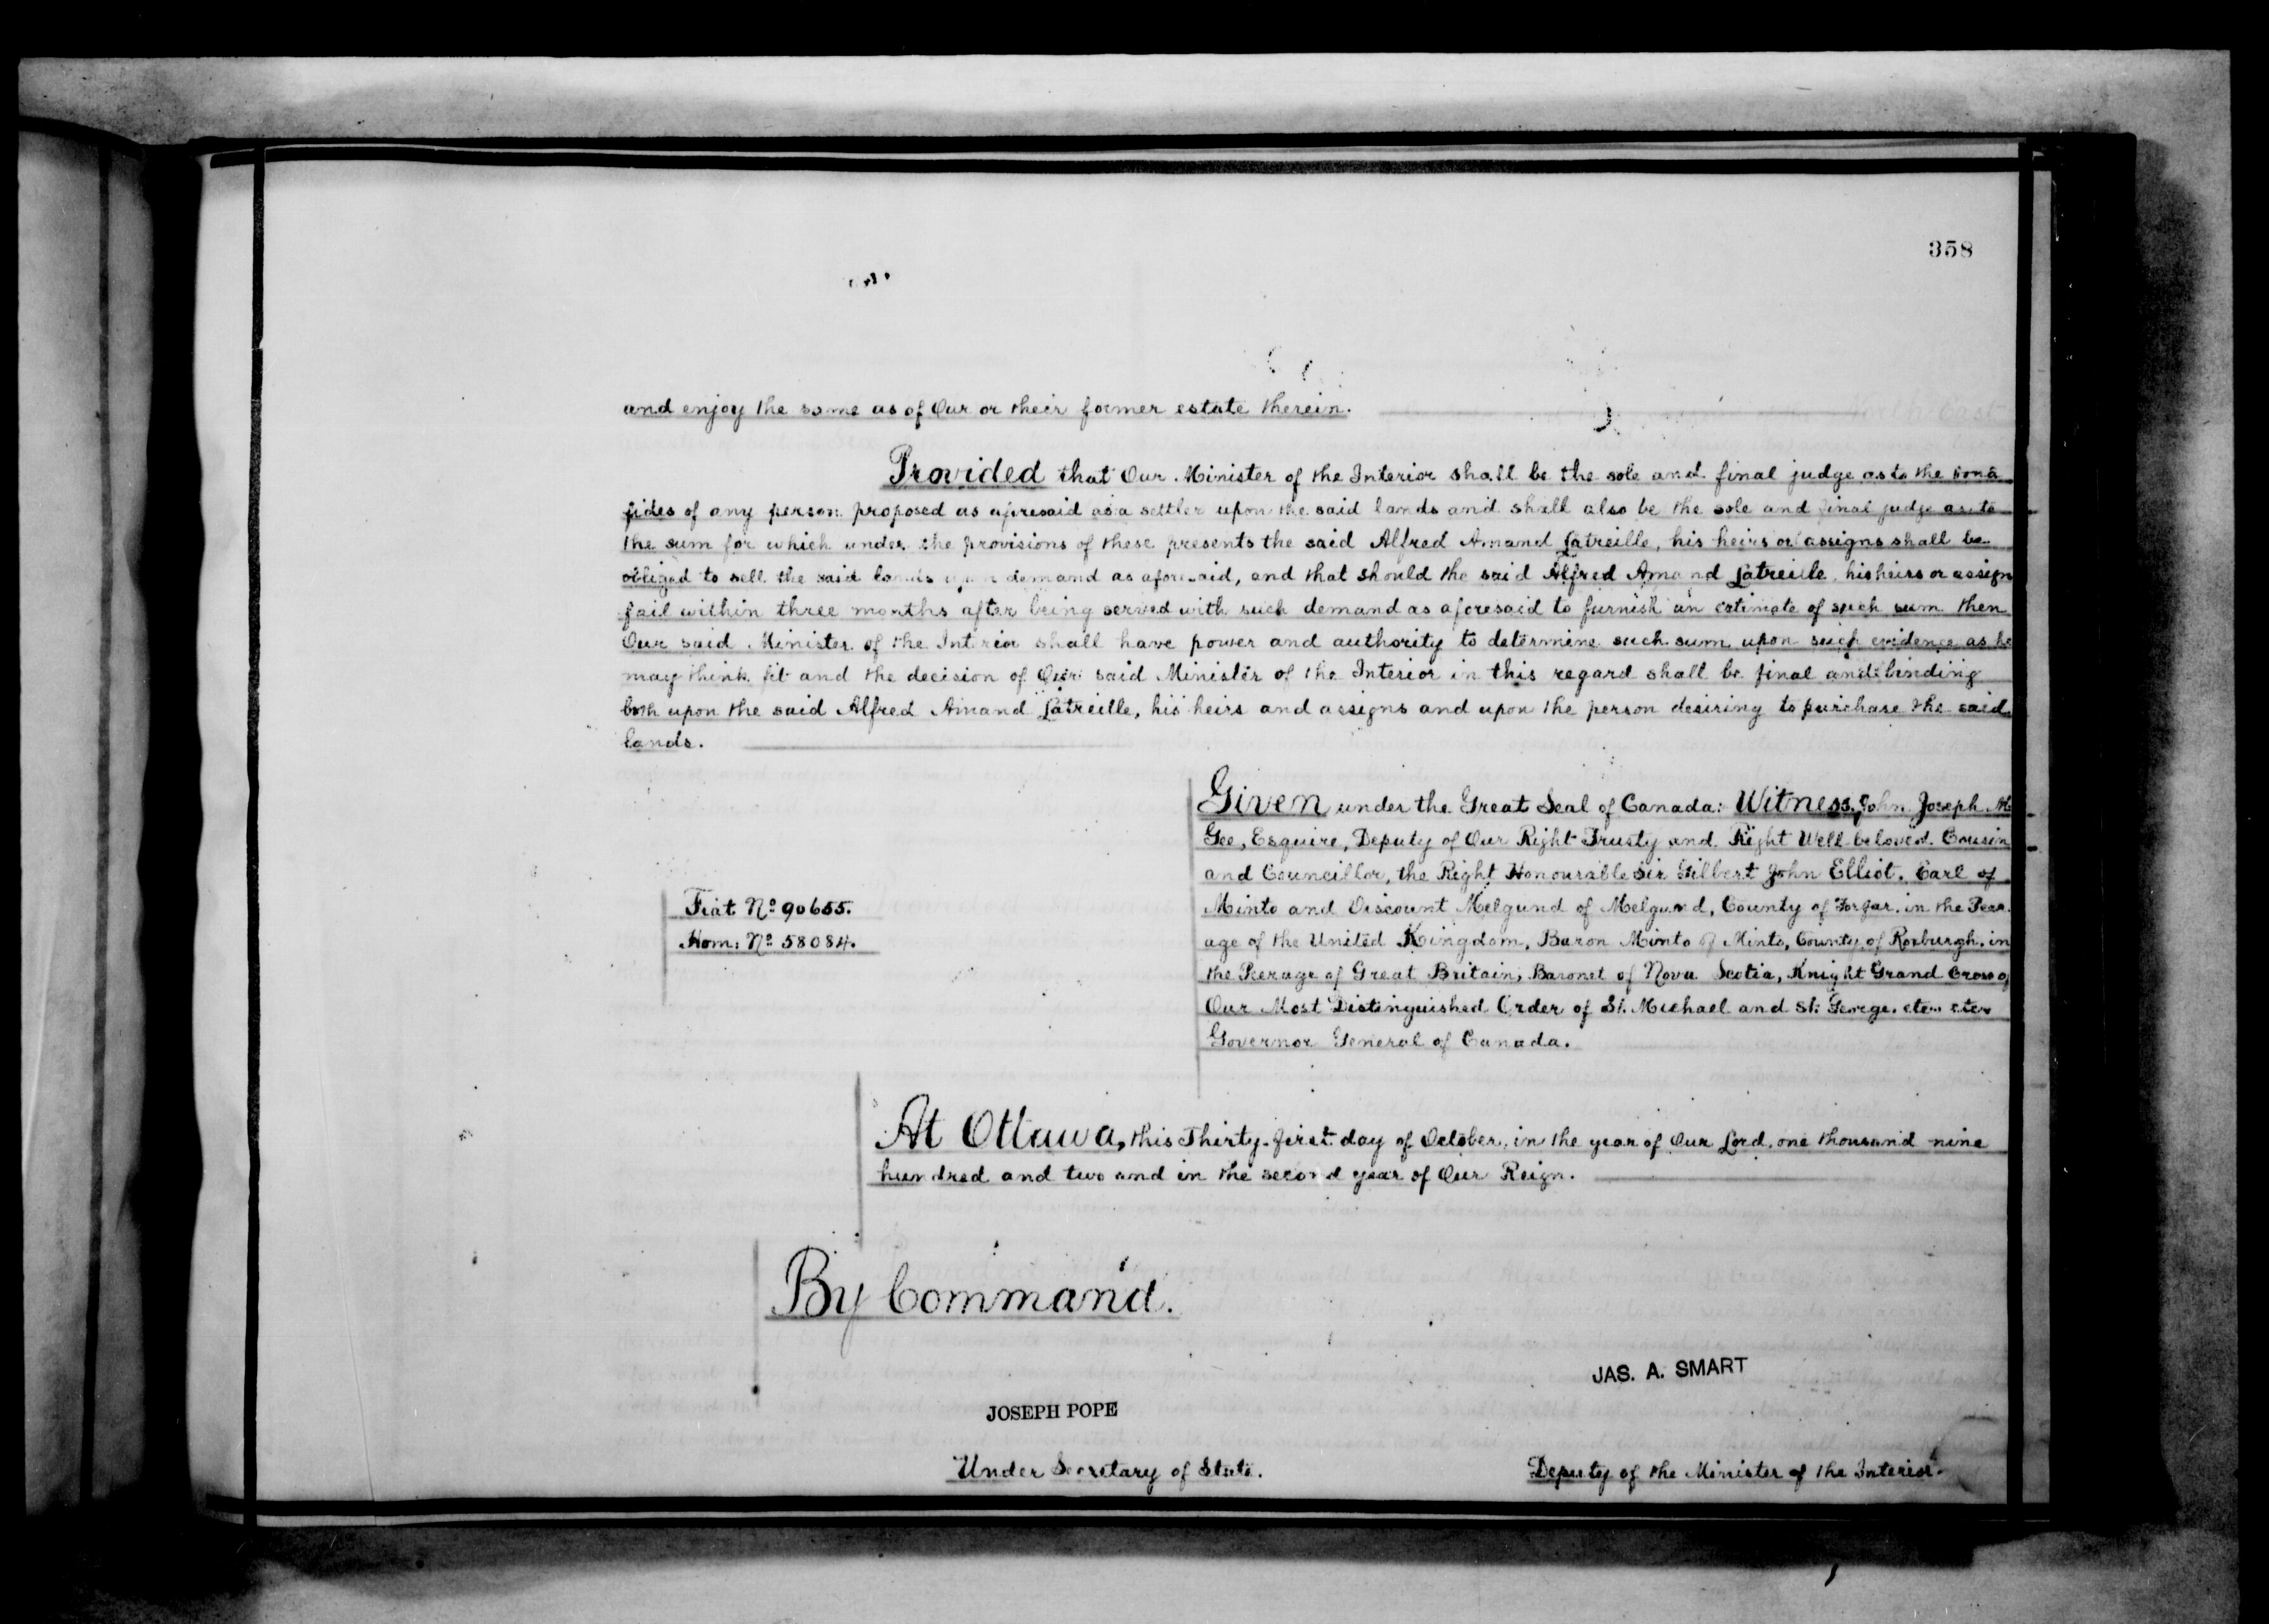 358
and enjoy the same as of Our or their former estate therein.
Provided that Our Minister of the Interior shall be the sole and final judge as to the bona
fides of any person proposed as aforesaid as a settler upon the said lands and shall also be the sole and final judge as to
the sum for which under the provisions of these presents the said Alfred Amand Latreille, his heirs or assigns shall be
obliged to sell the said lands upon demand as aforesaid, and that should the said Alfred Amand Latreille, his heirs or assign
fail within three months after being served with such demand as aforesaid to furnish an estimate of such sum then
Our said Minister of the Interior shall have power and authority to determine such sum upon such evidence as he
may think fit and the decision of Our said Minister of the Interior in this regard shall be final and binding
both upon the said Alfred Amand Latreille, his heirs and assigns and upon the person desiring to purchase the said
lands.
Given under the Great Seal of Canada: Witness, John Joseph Mc
Gee, Esquire, Deputy of Our Right Trusty and Right Well-beloved Cousin
and Councillor, the Right Honourable Sir Gilbert John Elliot, Earl of
Minto and Viscount Melgund of Melgund, County of Forfar, in the Peer-
age of the United Kingdom, Baron Minto of Minto, County of Roxburgh, in
the Peerage of Great Britain, Baronet of Nova Scotia, Knight Grand Cross of
Our Most Distinguished Order of St. Michael and St. George, etc., etc.,
Governor General of Canada.
Fiat No 90655.
Hom: No 58084.
At Ottawa, this Thirty-first day of October, in the year of Our Lord, one thousand nine
hundred and two and in the second year of Our Reign.
By Command.
JAS. A. SMART
JOSEPH POPE
Under Secretary of State.
Deputy of the Minister of the Interior.